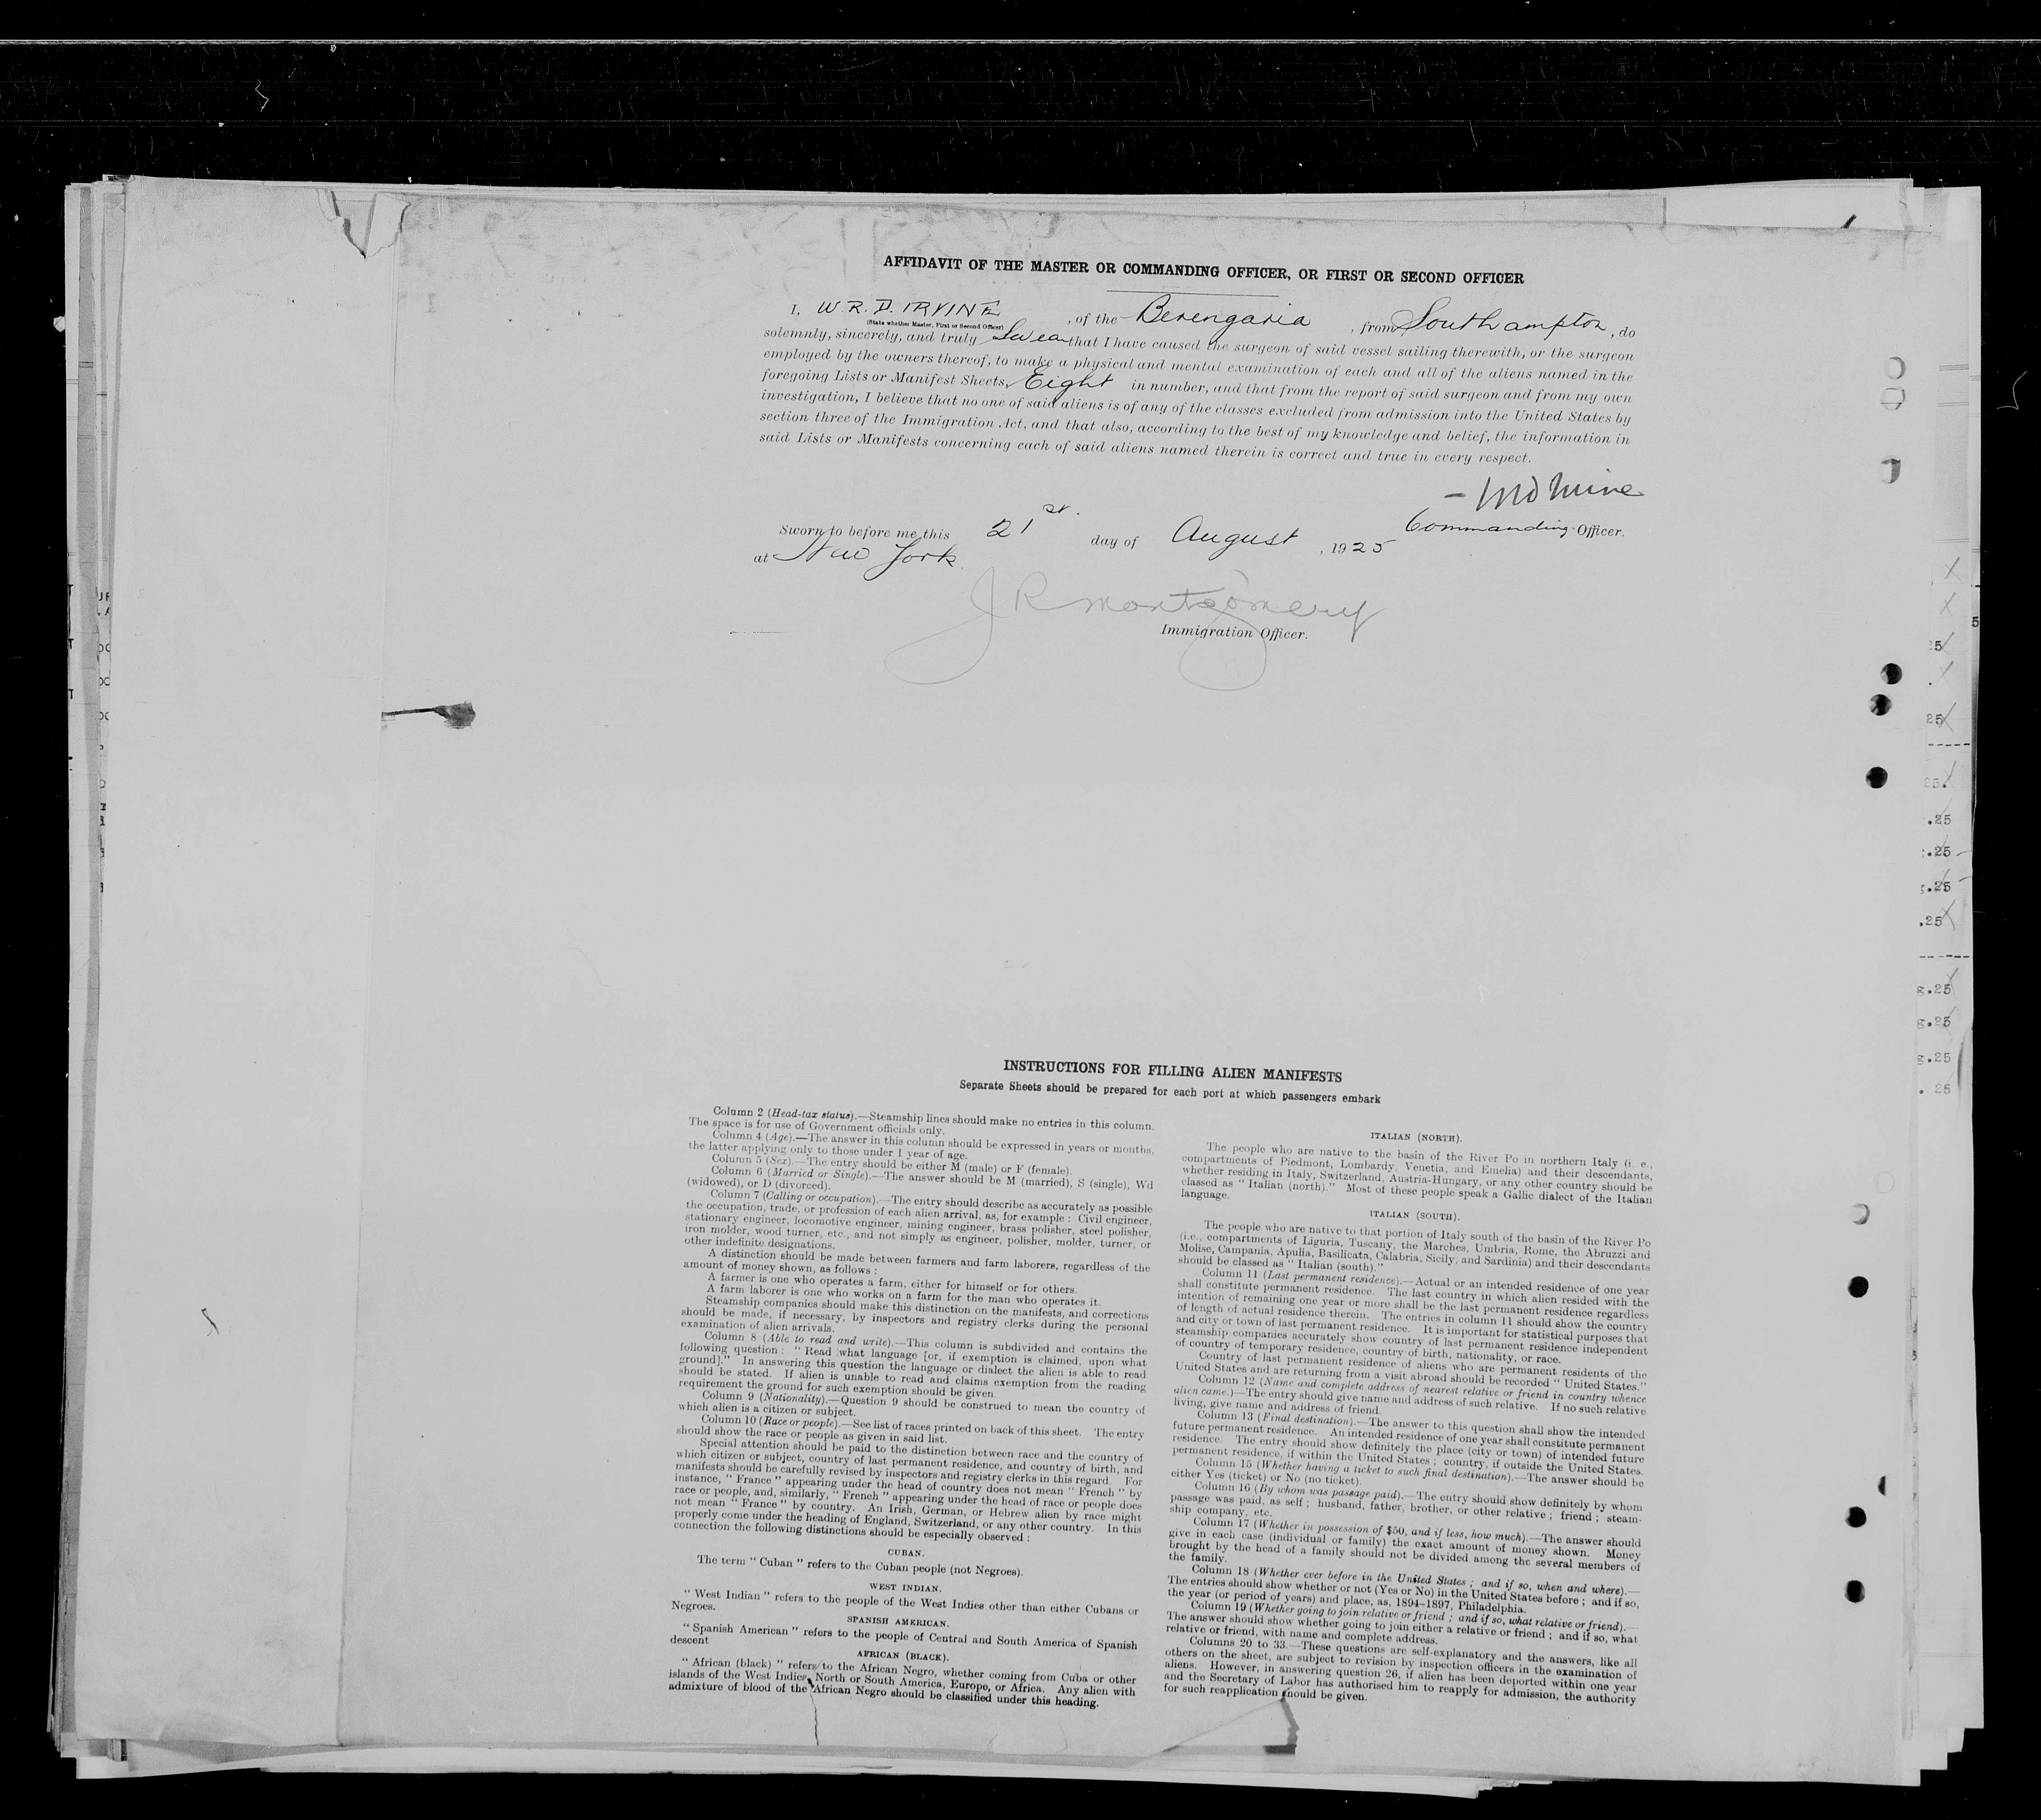 AFFIDAVIT OF THE MASTER OR COMMANDING OFFICER, OR FIRST OR SECOND OFFICER
I, W. R. D. IRVINE, of the Berengaria, from Southampton, do
(State whether Master, First or Second Officer)
solemnly, sincerely, and truly Swear that I have caused the surgeon of said vessel sailing therewith, or the surgeon
employed by the owners thereof, to make a physical and mental examination of each and all of the aliens named in the
foregoing Lists or Manifest Sheets, Eight in number, and that from the report of said surgeon and from my own
investigation, I believe that no one of said aliens is of any of the classes excluded from admission into the United States by
section three of the Immigration Act, and that also, according to the best of my knowledge and belief, the information in
said Lists or Manifests concerning each of said aliens named therein is correct and true in every respect.
Commanding Officer.
Sworn to before me this 21st. day of August, 1925
at New York.
J R Montgomery
Immigration Officer.
INSTRUCTIONS FOR FILLING ALIEN MANIFESTS
Separate Sheets should be prepared for each port at which passengers embark
Column 2 (Head-tax status).—Steamship lines should make no entries in this column.
The space is for use of Government officials only.
Column 4 (Age).—The answer in this column should be expressed in years or months,
the latter applying only to those under 1 year of age.
Column 5 (Sex).—The entry should be either M (male) or F (female).
Column 6 (Married or Single).—The answer should be M (married), S (single), Wd
(widowed), or D (divorced).
Column 7 (Calling or occupation).—The entry should describe as accurately as possible
the occupation, trade, or profession of each alien arrival, as, for example : Civil engineer,
stationary engineer, locomotive engineer, mining engineer, brass polisher, steel polisher,
iron molder, wood turner, etc., and not simply as engineer, polisher, molder, turner, or
other indefinite designations.
A distinction should be made between farmers and farm laborers, regardless of the
amount of money shown, as follows :
A farmer is one who operates a farm, either for himself or for others.
A farm laborer is one who works on a farm for the man who operates it.
Steamship companies should make this distinction on the manifests, and corrections
should be made, if necessary, by inspectors and registry clerks during the personal
examination of alien arrivals.
Column 8 (Able to read and write).—This column is subdivided and contains the
following question : " Read what language [or, if exemption is claimed, upon what
ground]." In answering this question the language or dialect the alien is able to read
should be stated. If alien is unable to read and claims exemption from the reading
requirement the ground for such exemption should be given.
Column 9 (Nationality).—Question 9 should be construed to mean the country of
which alien is a citizen or subject.
Column 10 (Race or people).—See list of races printed on back of this sheet. The entry
should show the race or people as given in said list.
Special attention should be paid to the distinction between race and the country of
which citizen or subject, country of last permanent residence, and country of birth, and
manifests should be carefully revised by inspectors and registry clerks in this regard. For
instance, " France " appearing under the head of country does not mean " French " by
race or people, and, similarly, " French " appearing under the head of race or people does
not mean " France " by country. An Irish, German, or Hebrew alien by race might
properly come under the heading of England, Switzerland, or any other country. In this
connection the following distinctions should be especially observed :
CUBAN.
The term " Cuban " refers to the Cuban people (not Negroes).
WEST INDIAN.
" West Indian " refers to the people of the West Indies other than either Cubans or
Negroes.
SPANISH AMERICAN.
" Spanish American " refers to the people of Central and South America of Spanish
descent
AFRICAN (BLACK).
" African (black) " refers to the African Negro, whether coming from Cuba or other
islands of the West Indies, North or South America, Europe, or Africa. Any alien with
admixture of blood of the African Negro should be classified under this heading.
ITALIAN (NORTH).
The people who are native to the basin of the River Po in northern Italy (i. e.,
compartments of Piedmont, Lombardy, Venetia, and Emelia) and their descendants,
whether residing in Italy, Switzerland, Austria-Hungary, or any other country should be
classed as " Italian (north)." Most of these people speak a Gallic dialect of the Italian
language.
ITALIAN (SOUTH).
The people who are native to that portion of Italy south of the basin of the River Po
(i.e., compartments of Liguria, Tuscany, the Marches, Umbria, Rome, the Abruzzi and
Molise, Campania, Apulia, Basilicata, Calabria, Sicily, and Sardinia) and their descendants
should be classed as " Italian (south)."
Column 11 (Last permanent residence).—Actual or an intended residence of one year
shall constitute permanent residence. The last country in which alien resided with the
intention of remaining one year or more shall be the last permanent residence regardless
of length of actual residence therein. The entries in column 11 should show the country
and city or town of last permanent residence. It is important for statistical purposes that
steamship companies accurately show country of last permanent residence independent
of country of temporary residence, country of birth, nationality, or race.
Country of last permanent residence of aliens who are permanent residents of the
United States and are returning from a visit abroad should be recorded " United States."
Column 12 (Name and complete address of nearest relative or friend in country whence
alien came.)—The entry should give name and address of such relative. If no such relative
living, give name and address of friend.
Column 13 (Final destination).—The answer to this question shall show the intended
future permanent residence. An intended residence of one year shall constitute permanent
residence. The entry should show definitely the place (city or town) of intended future
permanent residence, if within the United States ; country, if outside the United States.
Column 15 (Whether having a ticket to such final destination).—The answer should be
either Yes (ticket) or No (no ticket).
Column 16 (By whom was passage paid).—The entry should show definitely by whom
passage was paid, as self ; husband, father, brother, or other relative ; friend ; steam-
ship company, etc.
Column 17 (Whether in possession of $50, and if less, how much).—The answer should
give in each case (individual or family) the exact amount of money shown. Money
brought by the head of a family should not be divided among the several members of
the family.
Column 18 (Whether ever before in the United States ; and if so, when and where).—
The entries should show whether or not (Yes or No) in the United States before ; and if so,
the year (or period of years) and place, as, 1894-1897, Philadelphia.
Column 19 (Whether going to join relative or friend ; and if so, what relative or friend).—
The answer should show whether going to join either a relative or friend ; and if so, what
relative or friend, with name and complete address.
Columns 20 to 33.—These questions are self-explanatory and the answers, like all
others on the sheet, are subject to revision by inspection officers in the examination of
aliens. However, in answering question 26, if alien has been deported within one year
and the Secretary of Labor has authorised him to reapply for admission, the authority
for such reapplication should be given.